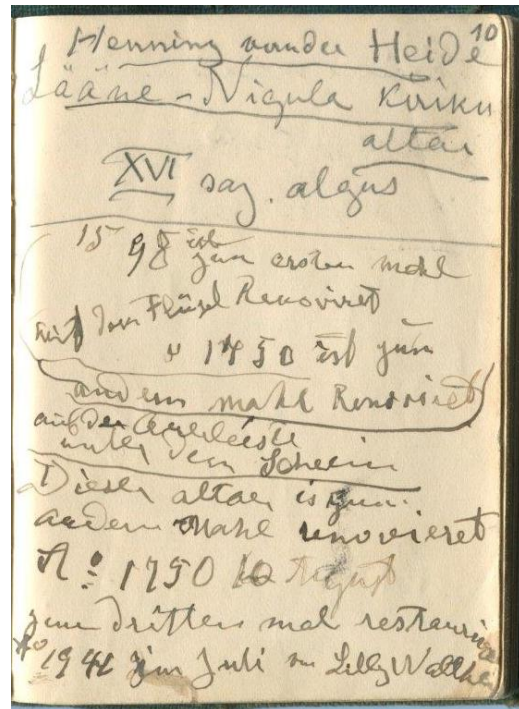 10
Henning vander Heide
Lääne-Nigula Kiriku
altar
XVI saj. algus
1598 ist
zum ersten mahl
mit dem Flügel Renoviret
1750 ist zum
andern mahl Renoviret
auf der
unter dem Schrein
Dieser altar is zum
andern mahl renovieret
Aº 1750 10 August
zum dritten mal restauriert
Aº 1941 im Juli von Lilly Walther